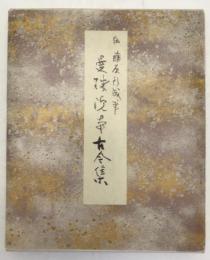 伝 藤原行成筆
曼殊院本古今集